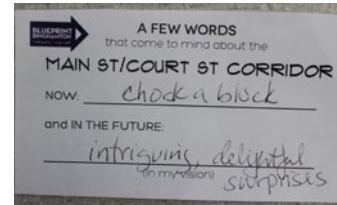 BLUEPRINT
BINGHAMTON
A FEW WORDS
that come to mind about the
MAIN ST/COURT ST CORRIDOR
NOW: chock a block
and IN THE FUTURE:
intriguing, delightful
(in my vision) surprises